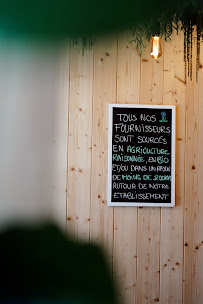 TOUS NOS
FOURNISSEURS
SONT SOURCÉS
EN AGRICULTURE
RAISONNÉE, EN BIO
ET/OU DANS UN RAYON
DE MOINS DE 200KM
AUTOUR DE NOTRE
ETABLISSEMENT